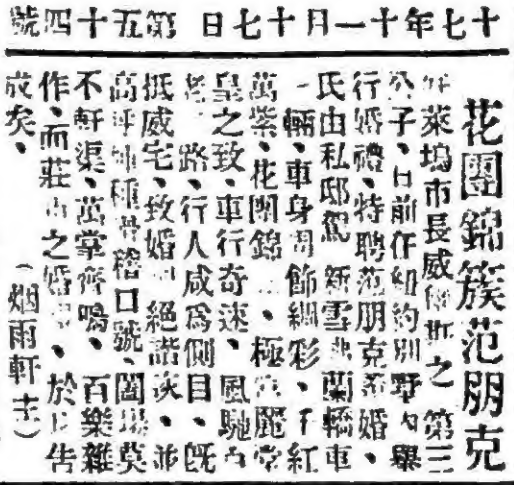 十七年十一月十七日 第五十四號
花團錦簇范朋克
萊塢市長威斯之第三
公子、日前在紐約別墅內舉
行婚禮、特聘范朋克證婚、
氏由私邸駕新雪蘭轎車
一輛、車身周飾綢彩、千紅
萬紫、花團錦、極富麗堂
皇之致、車行奇速、風馳
路、行人咸爲側目、既
抵威宅、致婚絕諧、並
高呼種滑稽口號、闔場莫
不軒渠、萬掌齊鳴、百樂雜
作、而莊之婚、於告
成矣、（烟雨軒主）